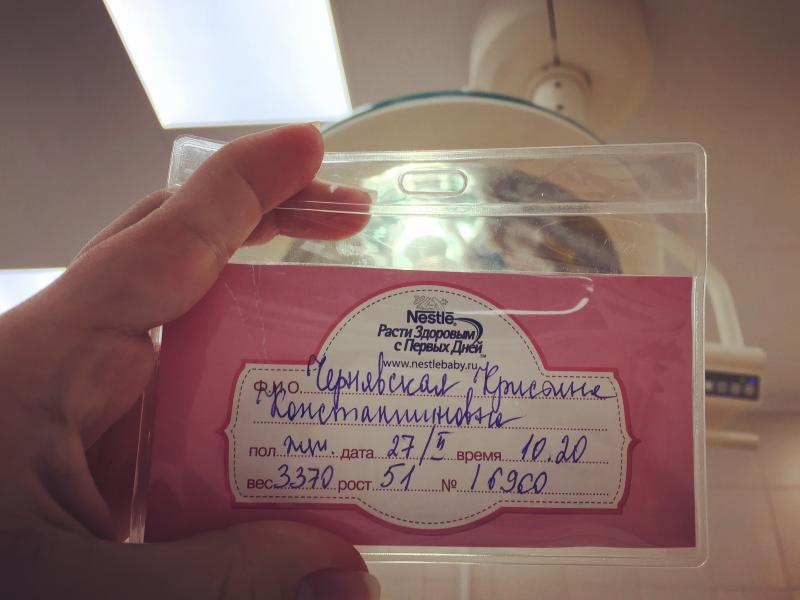 Nestlé
Расти Здоровым
с Первых Дней™
www.nestlebaby.ru
Ф.И.О. Чернявская Кристина
Константиновна
пол жен. дата 27/II время 10.20
вес 3370 рост 51 № 16960